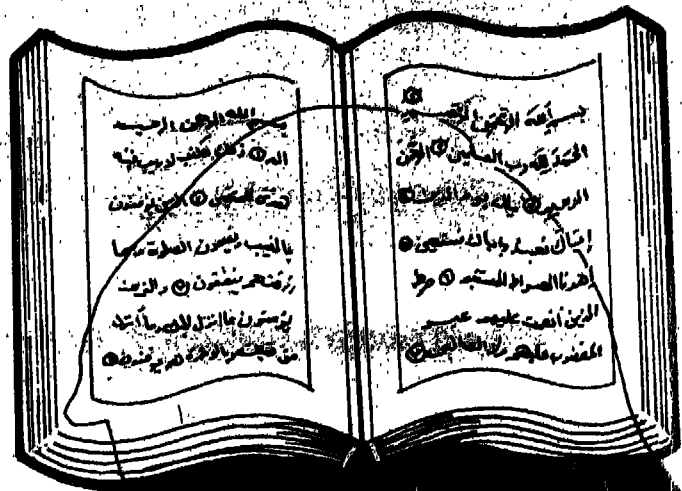 بسم الله الرحمن
الحمد لله رب العالمين ② الرحمن
الرحيم
إياك نعبد وإياك نستعين
إهدنا الصراط المستقيم ⑥ صراط
الذين أنعمت عليهم غير
المغضوب عليهم ولا الضالين ⑦
بسم الله الرحمن الرحيم
الم ① ذلك الكتاب لا ريب فيه
هدى للمتقين ② الذين يؤمنون
بالغيب ويقيمون الصلوة ومما
رزقنهم ينفقون ③ والذين
يؤمنون بما أنزل إليك وما أنزل
من قبلك وبالآخرة هم يوقنون